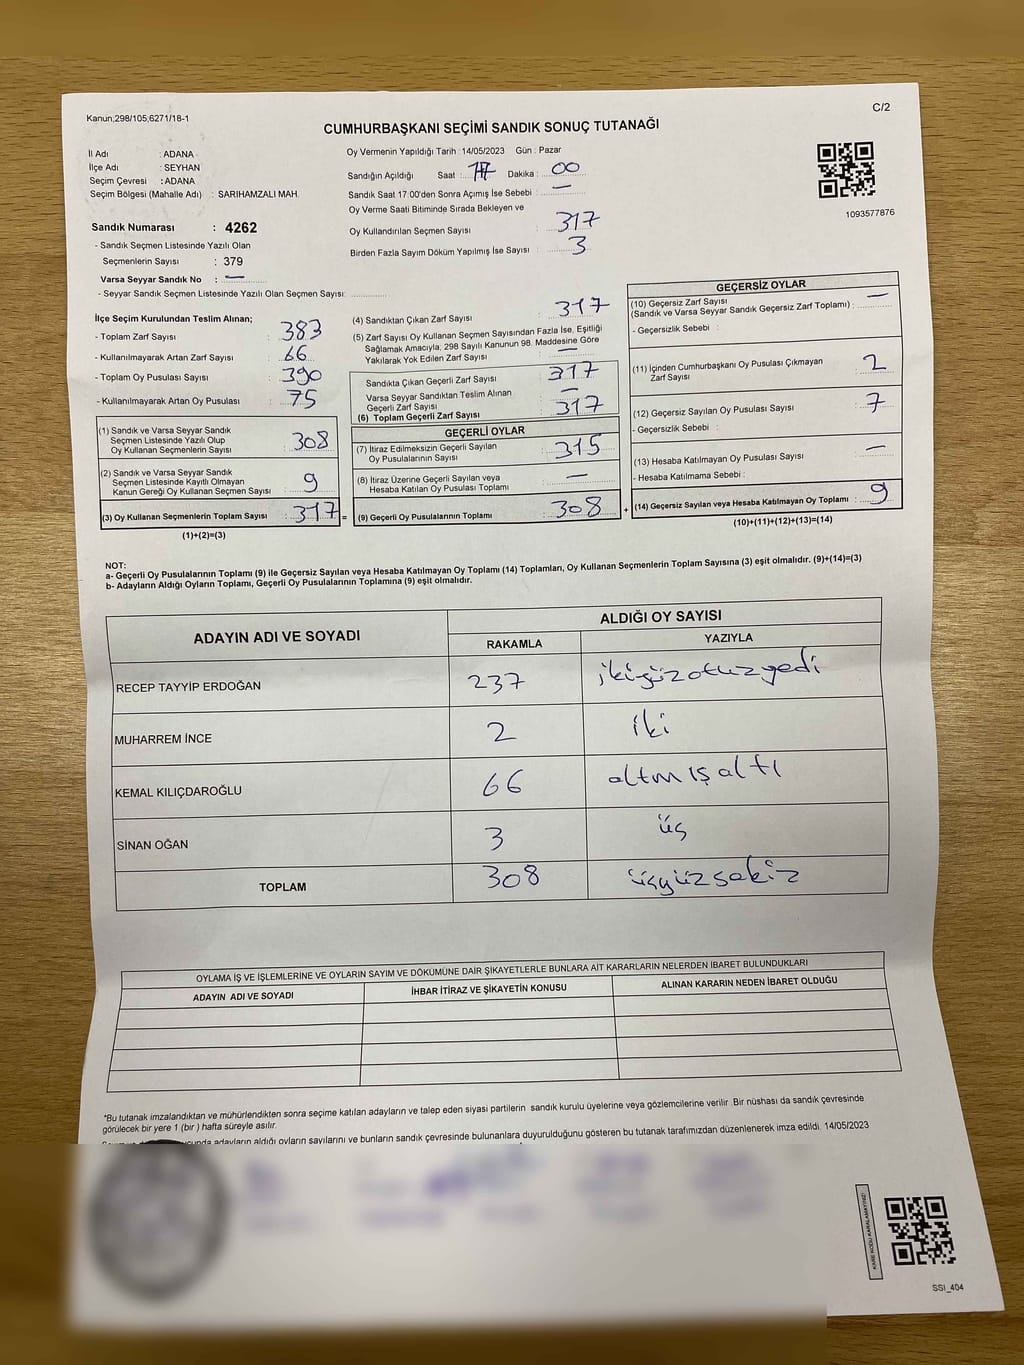 Kanun;298/105,6271/18-1
C/2
CUMHURBAŞKANI SEÇİMİ SANDIK SONUÇ TUTANAĞI
İl Adı : ADANA
İlçe Adı : SEYHAN
Seçim Çevresi : ADANA
Seçim Bölgesi (Mahalle Adı) : SARIHAMZALI MAH.
Oy Vermenin Yapıldığı Tarih : 14/05/2023 Gün : Pazar
Sandığın Açıldığı Saat : 17 Dakika : 00
Sandık Saat 17.00'den Sonra Açımış İse Sebebi : —
Oy Verme Saati Bitiminde Sırada Bekleyen ve
Oy Kullandırılan Seçmen Sayısı : 317
Birden Fazla Sayım Döküm Yapılmış İse Sayısı : 3
1093577876
Sandık Numarası : 4262
- Sandık Seçmen Listesinde Yazılı Olan
Seçmenlerin Sayısı : 379
Varsa Seyyar Sandık No : —
- Seyyar Sandık Seçmen Listesinde Yazılı Olan Seçmen Sayısı:
İlçe Seçim Kurulundan Teslim Alınan;
- Toplam Zarf Sayısı : 383
- Kullanılmayarak Artan Zarf Sayısı : 66
- Toplam Oy Pusulası Sayısı : 390
- Kullanılmayarak Artan Oy Pusulası : 75
(1) Sandık ve Varsa Seyyar Sandık
Seçmen Listesinde Yazılı Olup
Oy Kullanan Seçmenlerin Sayısı : 308
(2) Sandık ve Varsa Seyyar Sandık
Seçmen Listesinde Kayıtlı Olmayan
Kanun Gereği Oy Kullanan Seçmen Sayısı : 9
(3) Oy Kullanan Seçmenlerin Toplam Sayısı : 317 =
(1)+(2)=(3)
(4) Sandıktan Çıkan Zarf Sayısı : 317
(5) Zarf Sayısı Oy Kullanan Seçmen Sayısından Fazla İse, Eşitliği
Sağlamak Amacıyla, 298 Sayılı Kanunun 98. Maddesine Göre
Yakılarak Yok Edilen Zarf Sayısı : —
Sandıkta Çıkan Geçerli Zarf Sayısı : 317
Varsa Seyyar Sandıktan Teslim Alınan
Geçerli Zarf Sayısı : —
(6) Toplam Geçerli Zarf Sayısı : 317
GEÇERLİ OYLAR
(7) İtiraz Edilmeksizin Geçerli Sayılan
Oy Pusulalarının Sayısı : 315
(8) İtiraz Üzerine Geçerli Sayılan veya
Hesaba Katılan Oy Pusulası Toplamı : —
(9) Geçerli Oy Pusulalarının Toplamı : 308 +
GEÇERSİZ OYLAR
(10) Geçersiz Zarf Sayısı
(Sandık ve Varsa Seyyar Sandık Geçersiz Zarf Toplamı) : —
- Geçersizlik Sebebi :
(11) İçinden Cumhurbaşkanı Oy Pusulası Çıkmayan
Zarf Sayısı : 2
(12) Geçersiz Sayılan Oy Pusulası Sayısı : 7
- Geçersizlik Sebebi :
(13) Hesaba Katılmayan Oy Pusulası Sayısı : —
- Hesaba Katılmama Sebebi :
(14) Geçersiz Sayılan veya Hesaba Katılmayan Oy Toplamı : 9
(10)+(11)+(12)+(13)=(14)
NOT:
a- Geçerli Oy Pusulalarının Toplamı (9) ile Geçersiz Sayılan veya Hesaba Katılmayan Oy Toplamı (14) Toplamları, Oy Kullanan Seçmenlerin Toplam Sayısına (3) eşit olmalıdır. (9)+(14)=(3)
b- Adayların Aldığı Oyların Toplamı, Geçerli Oy Pusulalarının Toplamına (9) eşit olmalıdır.
ADAYIN ADI VE SOYADI ALDIĞI OY SAYISI
RAKAMLA YAZIYLA
RECEP TAYYİP ERDOĞAN 237 ikiyüzotuzyedi
MUHARREM İNCE 2 iki
KEMAL KILIÇDAROĞLU 66 altmışaltı
SİNAN OĞAN 3 üç
TOPLAM 308 üçyüzsekiz
OYLAMA İŞ VE İŞLEMLERİNE VE OYLARIN SAYIM VE DÖKÜMÜNE DAİR ŞİKAYETLERLE BUNLARA AİT KARARLARIN NELERDEN İBARET BULUNDUKLARI
ADAYIN ADI VE SOYADI İHBAR İTİRAZ VE ŞİKAYETİN KONUSU ALINAN KARARIN NEDEN İBARET OLDUĞU
*Bu tutanak imzalandıktan ve mühürlendikten sonra seçime katılan adayların ve talep eden siyasi partilerin sandık kurulu üyelerine veya gözlemcilerine verilir .Bir nüshası da sandık çevresinde
görülecek bir yere 1 (bir ) hafta süreyle asılır.
adayların aldığı oyların sayılarını ve bunların sandık çevresinde bulunanlara duyurulduğunu gösteren bu tutanak tarafımızdan düzenlenerek imza edildi. 14/05/2023
KARE KODU KARALAMAYINIZ!
SSI_404